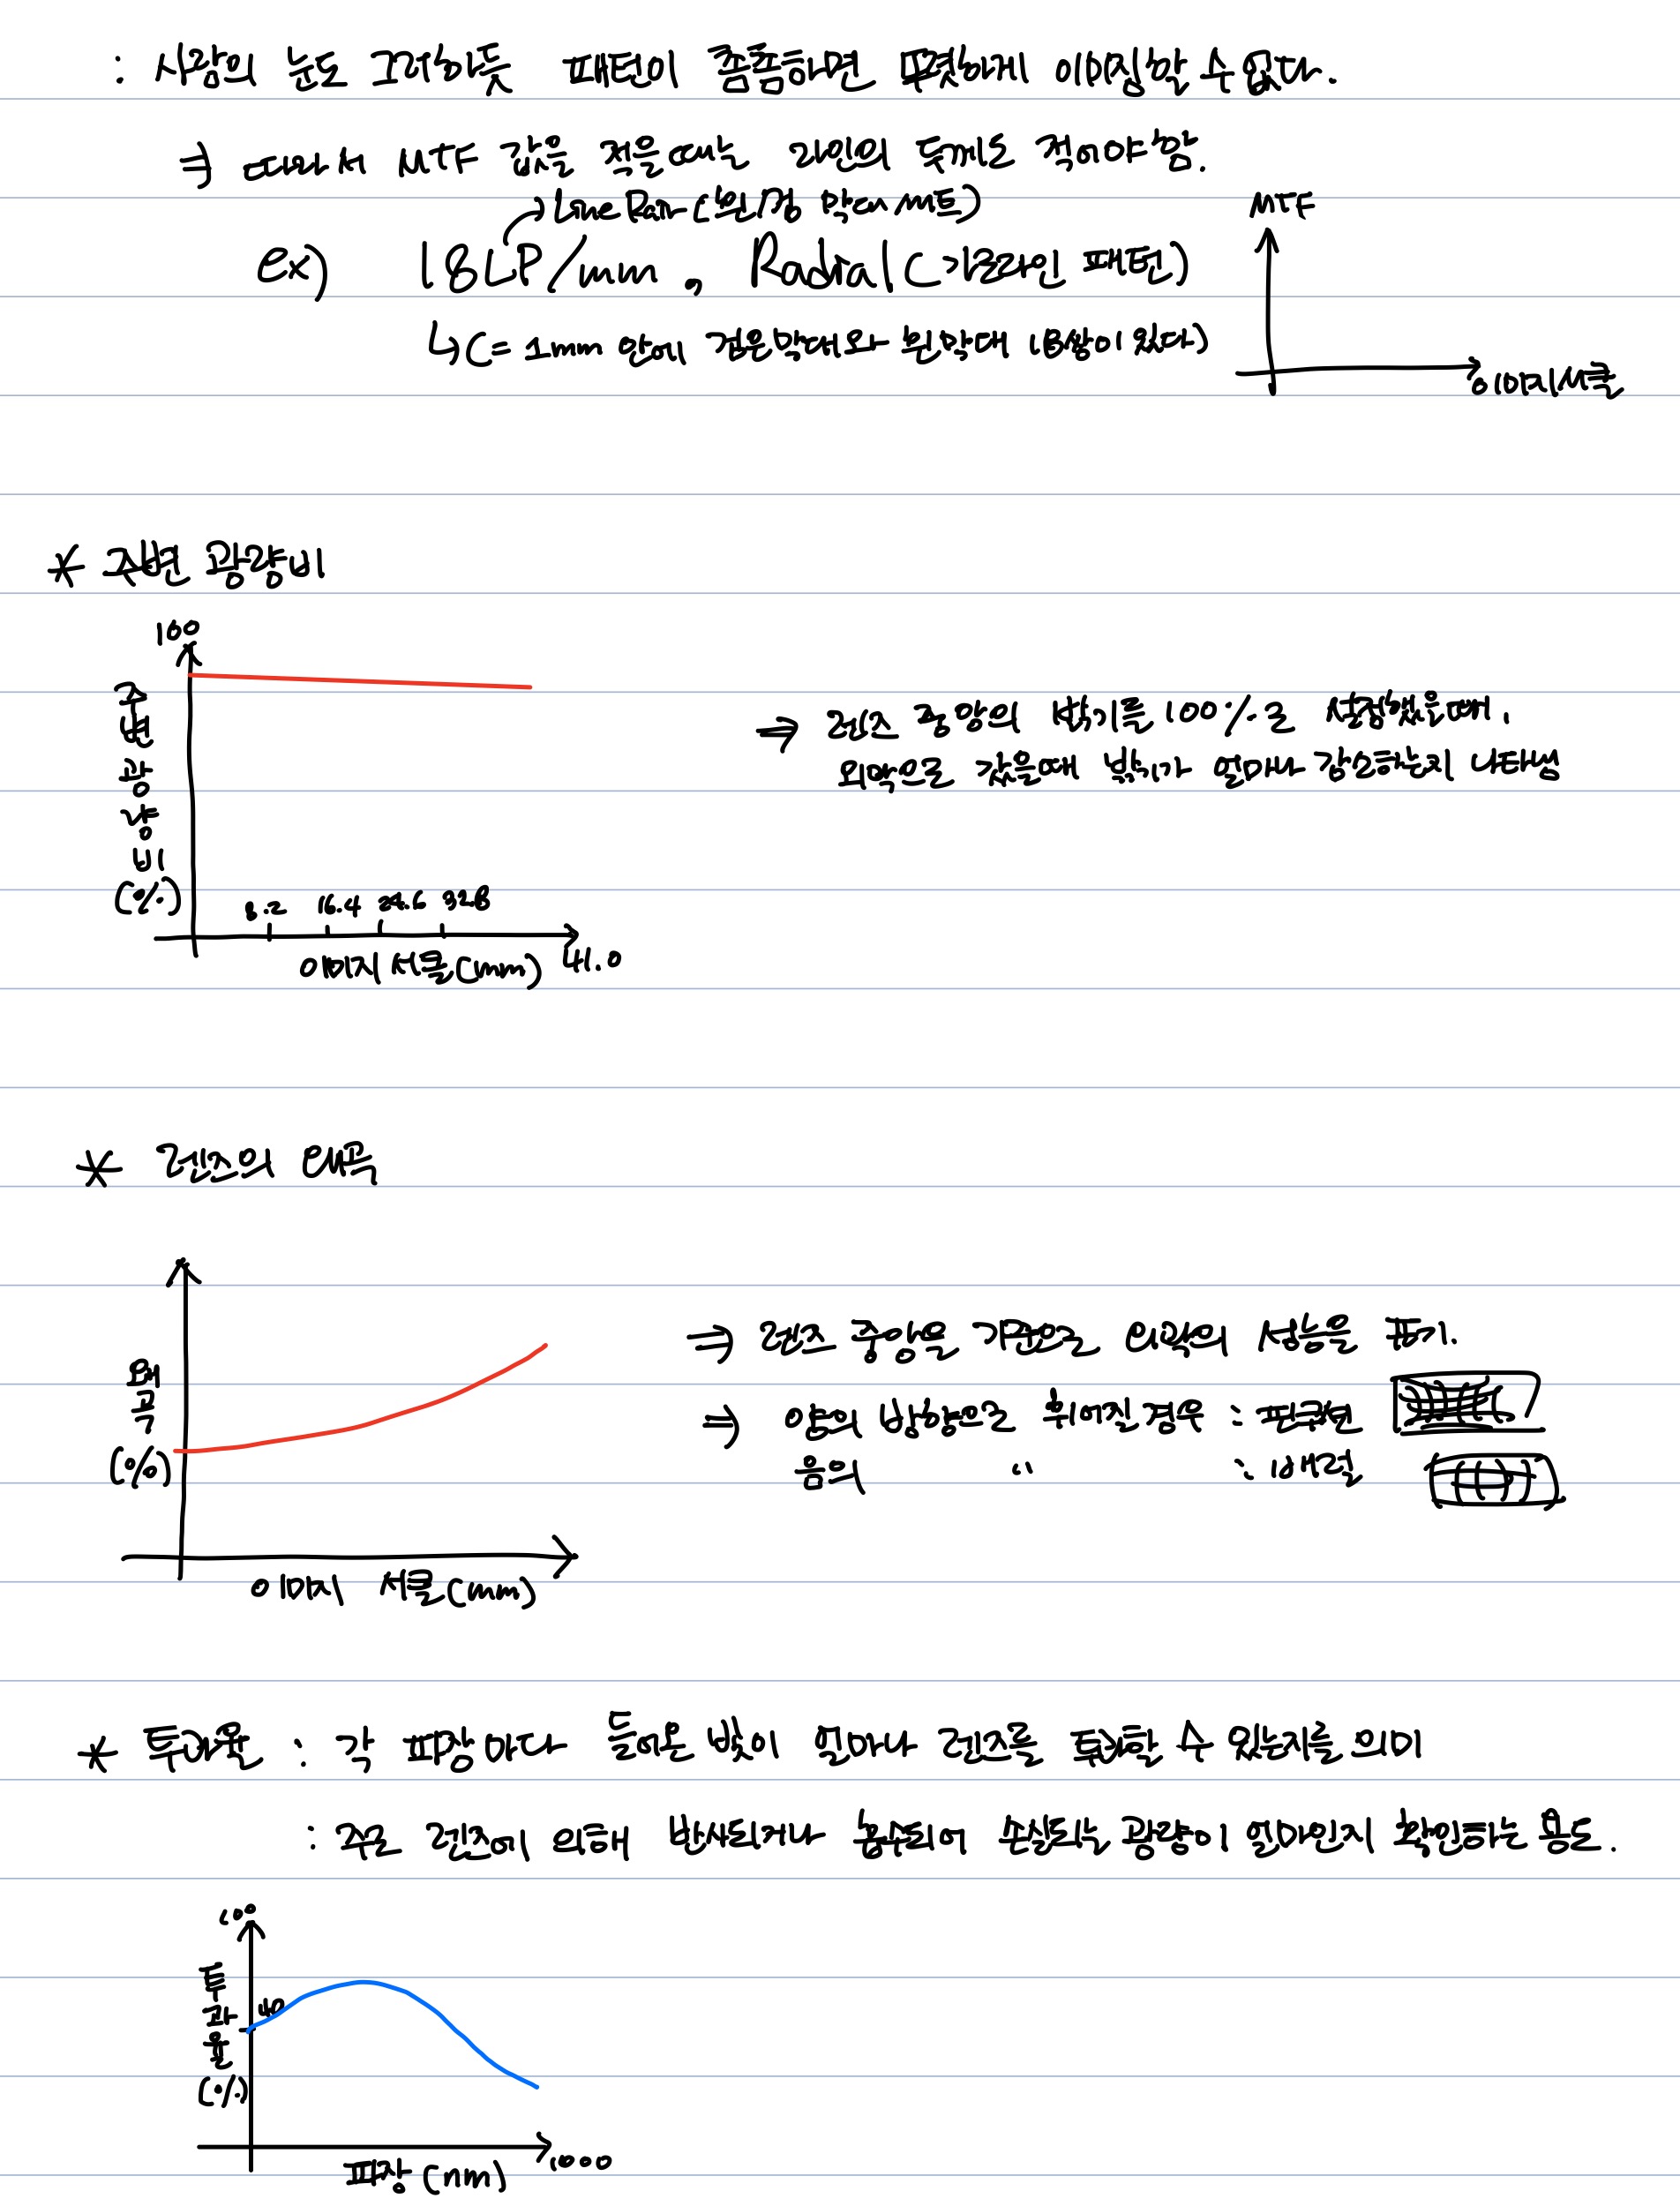 : 사람의 눈도 그러하듯 패턴이 촘촘하면 뚜렷하게 이미징할 수 없다.
⇒ 따라서 MTF 값을 적을때는 라인의 두께도 적어야함.
→ Line Pair (흰/검 막대 세트)
ex) 18LP/mm, Radial (가로라인 패턴)
↳ (= 1mm 안에 검은막대와 흰막대 18쌍이 있다)
MTF
이미지서클
* 주변 광량비
100
주변광량비 (%)
8.2 16.4 24.6 32.8
이미지 서클 (mm) 41.0
⇒ 렌즈 중앙의 밝기를 100%로 설정했을때,
외곽으로 갔을때 밝기가 얼마나 감소하는지 나타냄
* 렌즈의 왜곡
왜곡 (%)
이미지 서클 (mm)
⇒ 렌즈 중앙을 기준으로 외곽의 성능을 표기.
⇒ 양의 방향으로 휘어질 경우 : 핀쿠션
음의 〃 : 배럴
* 투과율 : 각 파장마다 들어온 빛이 얼마나 렌즈를 투과할 수 있는지를 의미
: 주로 렌즈에 의해 반사되거나 흡수되어 손실되는 광량이 얼마인지 확인하는 용도.
100
투과율 (%)
40
파장 (nm) 1000